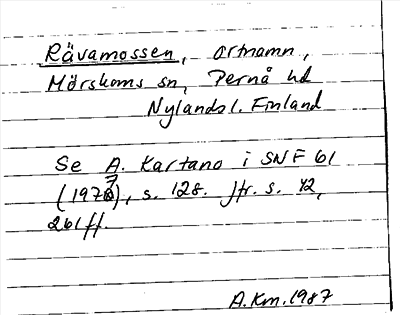 Rävamossen, ortnamn,
Mörskoms sn, Pernå hd
Nylandsl. Finland
Se A. Kartano i SNF 61
(1973), s. 128. Jfr. s. 42,
261ff.
A.Km.1987